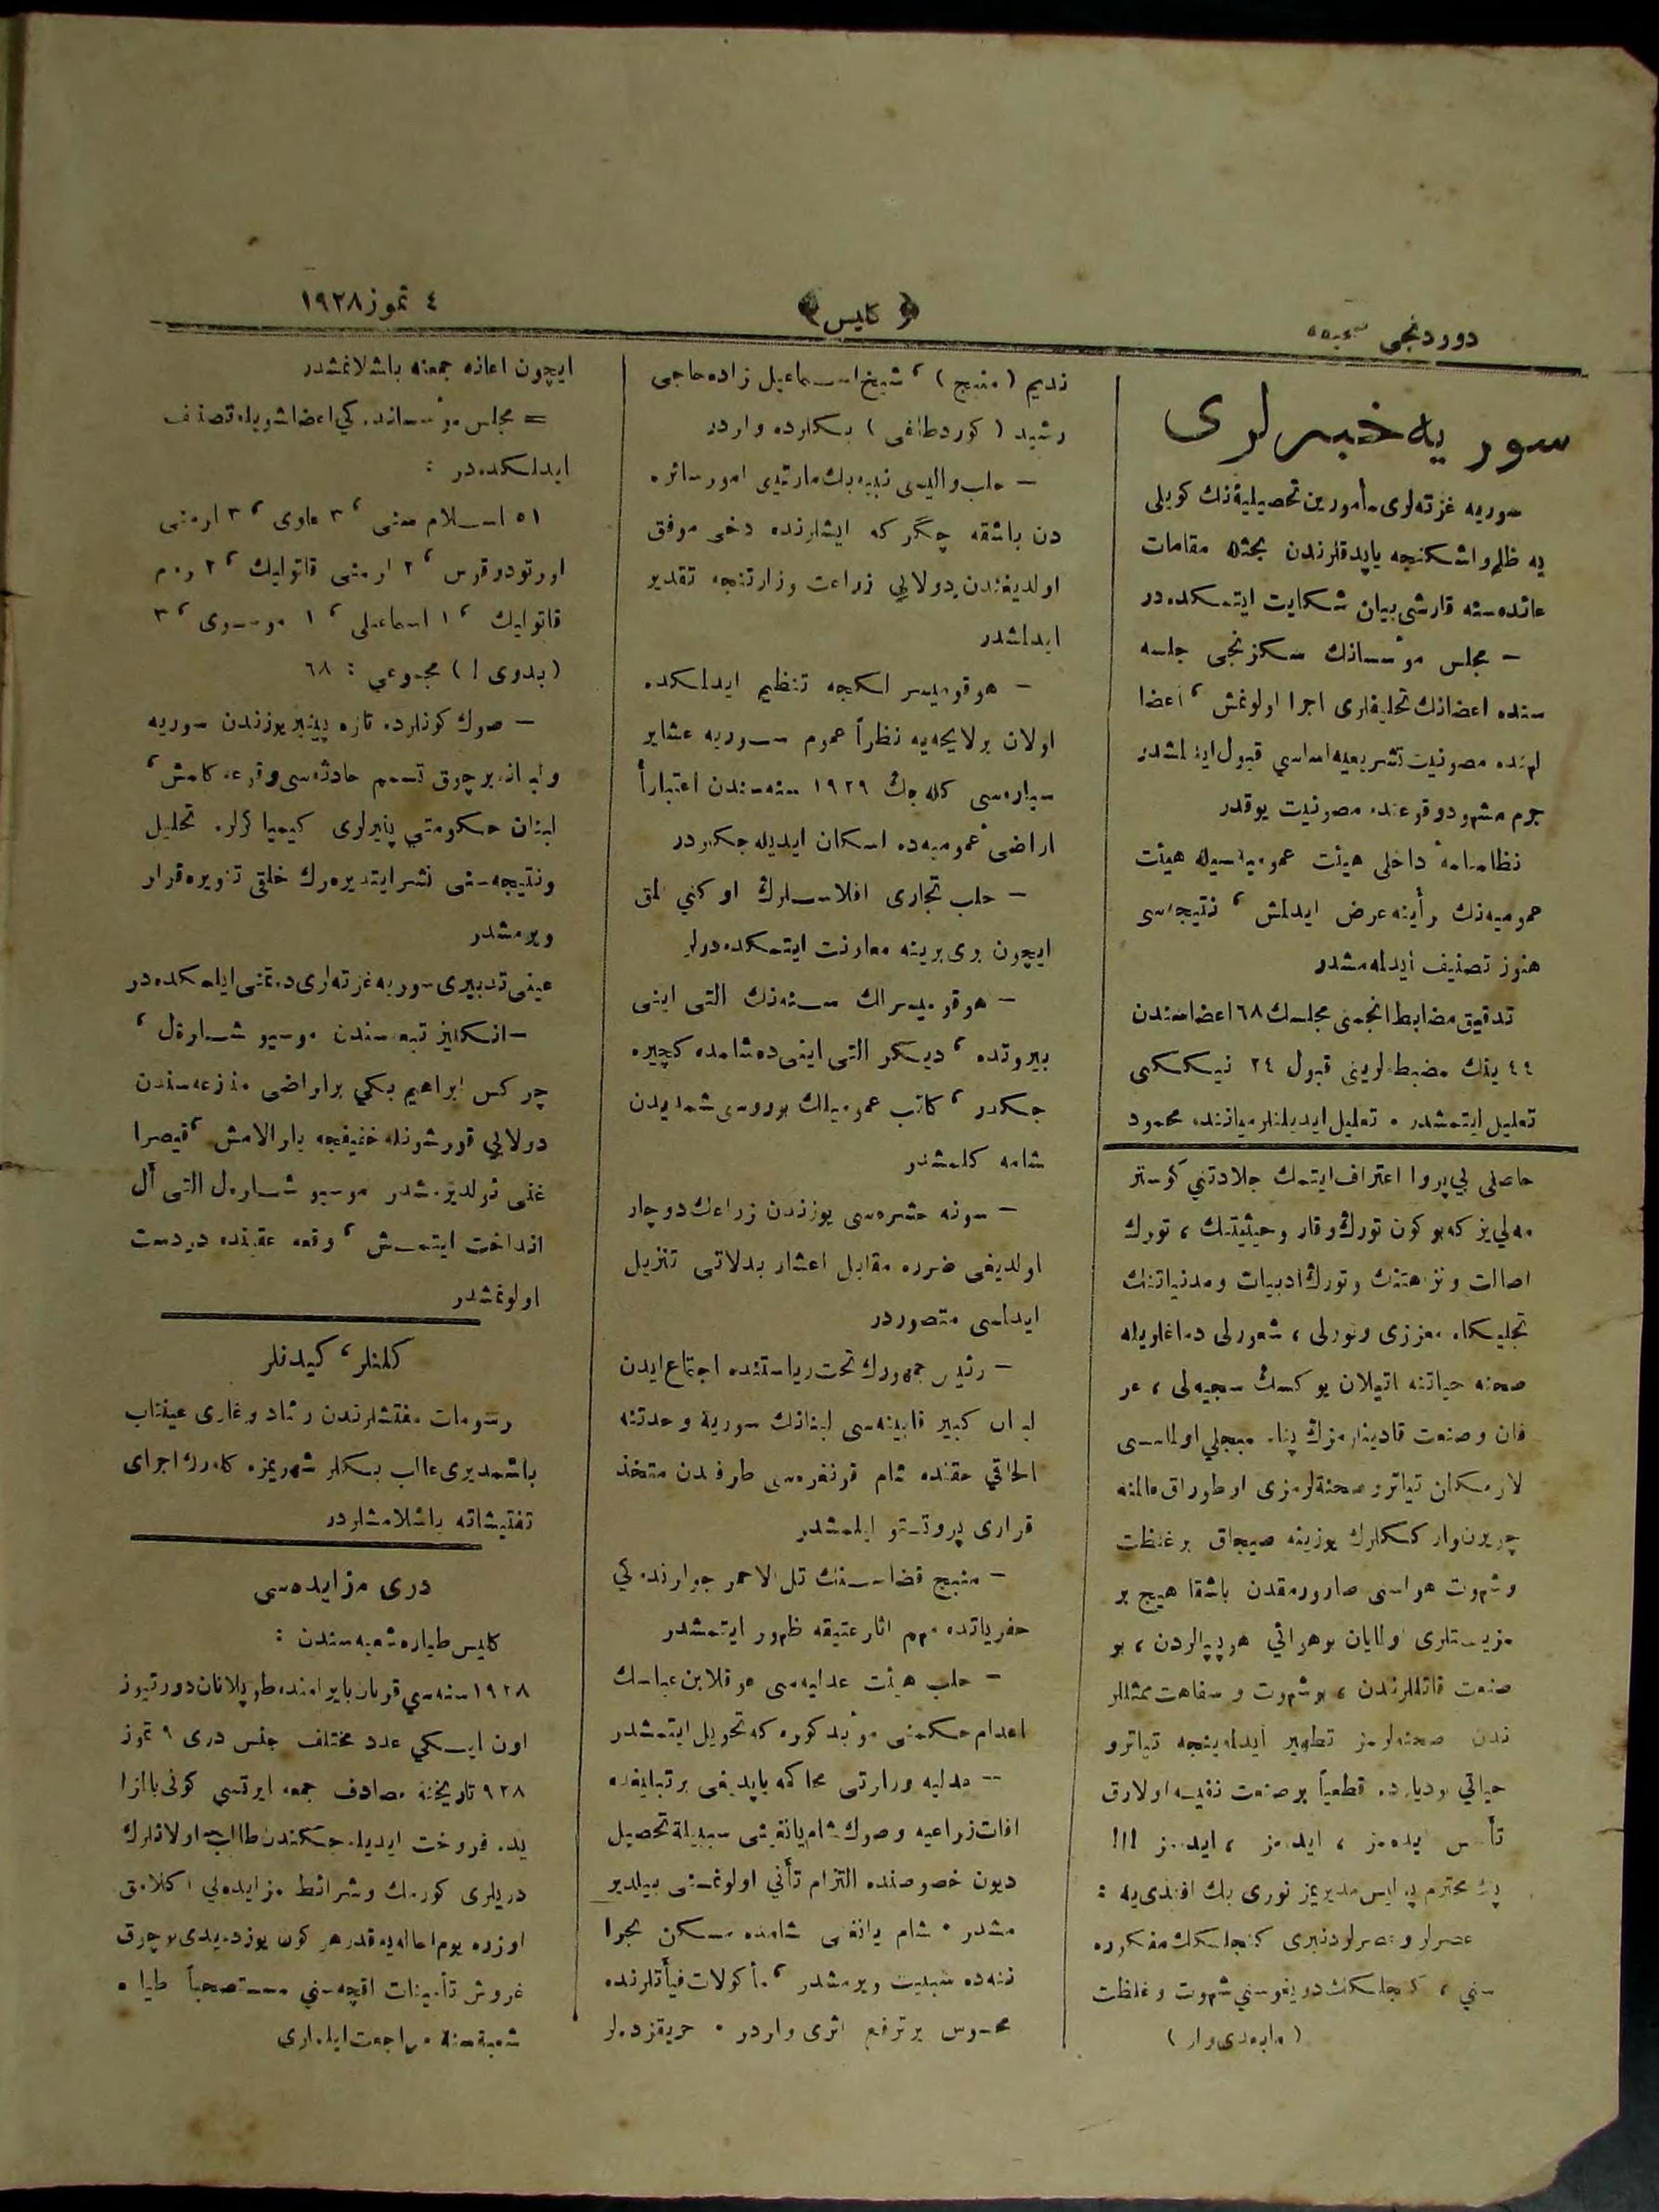 دوردنجی صحیفه
﴿ كليس ﴾
٤ تموز ١٩٢٨
سوريه خبرلری
سوريه غزته‌لری مأمورين تحصيليه‌نك كويلی
يه ظلم واشكنجه ياپدقلرندن بحثله مقامات
عائده‌سنه قارشی بيان شكايت ايتمكده‌در
— مجلس مؤسسانك سكزنجی جلسه
سنده اعضانك تحليفلری اجرا اولونمش ، اعضا
لرنده مصونيت تشريعيه اساسي قبول ايدلمشدر
جرم مشهود وقوعنده مصونيت يوقدر
نظامنامۀ داخلی هيئت عموميه‌سيله هيئت
عموميه‌نك رأينه عرض ايدلمش ، نتيجه‌سی
هنوز تصنيف ايدلمه‌مشدر
تدقيق مضابط انجمنی مجلسك ٦٨ اعضاسندن
٤٤ ينك مضبطه‌لرينی قبول ٢٤ نيككنی
تعليل ايتمشدر . تعليل ايديلنلر مياننده محمود
حاصلی بي‌پروا اعتراف ايتمك جلادتنی كوستر
مه‌لی‌يز كه بو كون تورك وقار وحيثيتنك ، تورك
اصالت ونزاهتنك وتورك ادبيات ومدنياتنك
تجليكاه معززی ونورلی ، شعورلی دماغلريله
صحنه حياتنه اتيلان يوكسك سجيه‌لی ، عر
فان وصنعت قادينلرمزك پناه مبجلي اولماسی
لازمكلان تياترو صحنه‌لرمزی اورطوراق عالمنه
چويرن وار كككلرك يوزينه صيجاق بر غلظت
وشهوت هواسی صاورمقدن باشقا هيچ بر
مزيتلری اولمايان بو هوائي هوپپالردن ، بو
صنعت قاتللرندن ، بو شهوت وسفاهت ممثللر
ندن صحنه‌لرمز تطهير ايدلمه‌ينجه تياترو
حياتي بو دياره قطعياً بر صنعت نفيسه اولارق
تأسس ايده‌مز ، ايده‌مز ، ايده‌مز !!!
پك محترم پوليس مديريمز نوری بك افندی‌يه :
عصرلر وعصرلردنبری كنجلكك مفكوره
سنی ، كنجلكك دويغوسنی شهوت وغلظت
( مابعدی وار )
نديم ( منبج ) ، شيخ اسماعيل زاده حاجی
رشيد ( كوردطاغی ) بكلرده واردر
— حلب واليسی نبيه بك مارتينی امور سائره
دن باشقه چگركه ايشلرنده دخی موفق
اولديغندن دولايي زراعت وزارتنجه تقدير
ايدلمشدر
— هوقوميسرلكجه تنظيم ايدلمكده
اولان بر لايحه‌يه نظراً عموم سوريه عشاير
سياره‌سی كله‌جك ١٩٢٩ سنه‌سندن اعتباراً
اراضئ عموميه‌ده اسكان ايديله‌جكلردر
— حلب تجاری افلاسلرك اوكني المق
ايچون بری برينه معاونت ايتمكده‌درلر
— هوقوميسرلك سنه‌نك التی اينی
بيروتده ، ديكر التی اينی ده شامده كچيره
جكدر ، كاتب عموميلك بوروسی شمديدن
شامه كلمشدر
— سونه حشره‌سی يوزندن زراعك دوچار
اولديغی ضرره مقابل اعشار بدلاتی تنزيل
ايدلمسی متصوردر
— رئيس جمهورك تحت رياستنده اجتماع ايدن
لبنان كبير قابينه‌سی لبنانك سوريه وحدتنه
الحاقي حقنده شام قونغره‌سی طرفندن متخذ
قراری پروتستو ايلمشدر
— منبج قضاسنك تل الاحمر جوارنده‌كي
حفرياتده مهم اثار عتيقه ظهور ايتمشدر
— حلب هيئت عدليه‌سی هوقلا بن عباسك
اعدام حكمنی مؤبد كوره‌كه تحويل ايتمشدر
— عدليه وزارتی محاكمه ياپديغی بر تبليغده
افات زراعيه وصوك شام يانغينی سببيله تحصيل
ديون خصوصنده التزام تأني اولونمسنی بيلدير
مشدر . شام يانغنی شامده مسكن بحرا
ننه‌ده سببيت ويرمشدر ، مأكولات فيأتلرنده
محسوس بر ترفع اثری واردر . حريقزده‌لر
ايچون اعانه جمعنه باشلانمشدر
= مجلس مؤسسانده‌كي اعضا شويله تصنيف
ايدلمكده‌در :
٥١ اسلام سنی ، ٣ علوی ، ٣ ارمنی
اورتودوقس ، ٢ ارمنی قاتوليك ، ٢ روم
قاتوليك ، ١ اسماعيلی ، ١ موسوی ، ٣
( بدوی ! ) مجموعي : ٦٨
— صوك كونلرده تازه پينير يوزندن سوريه
ولبنانده بر چوق تسمم حادثه‌سی وقوعه كلمش ،
لبنان حكومتي پنيرلری كيمياكرلره تحليل
ونتيجه‌سنی نشر ايتديره‌رك خلقی تنويره قرار
ويرمشدر
عينی تدبيری سوريه غزته‌لری ده تمنی ايلمكده‌در
— انكليز تبعه‌سندن موسيو شارل ،
چركس ابراهيم بكي بر اراضی منازعه‌سندن
دولايي قورشونله خفيفجه يارالامش ، قيصرا
غنی ئولديرمشدر موسيو شارل التی أل
انداخت ايتمش ، وقعه عقبنده دردست
اولونمشدر
كلنلر ، كيدنلر
رسومات مفتشلرندن رشاد وغازی عينتاب
باشمديری طالب بكلر شهريمزه كلەرك اجرای
تفتيشاته باشلامشلردر
دری مزايده‌سی
كليس طياره شعبه‌سندن :
١٩٢٨ سنه‌سی قربان بايرامنده طوپلانان دورتيوز
اون ايكي عدد مختلف جنس دری ٩ تموز
٩٢٨ تاريخنه مصادف جمعه ايرتسي كونی بالمزا
يده فروخت ايديله‌جكندن طالب اولانلرك
دريلری كورمك وشرائط مزايده‌يي اكلامق
اوزره يوم احاله‌يه قدر هر كون يوزده يدی بوچوق
غروش تأمينات اقچه‌سنی مستصحباً طياره
شعبه‌سنه مراجعت ايلملری